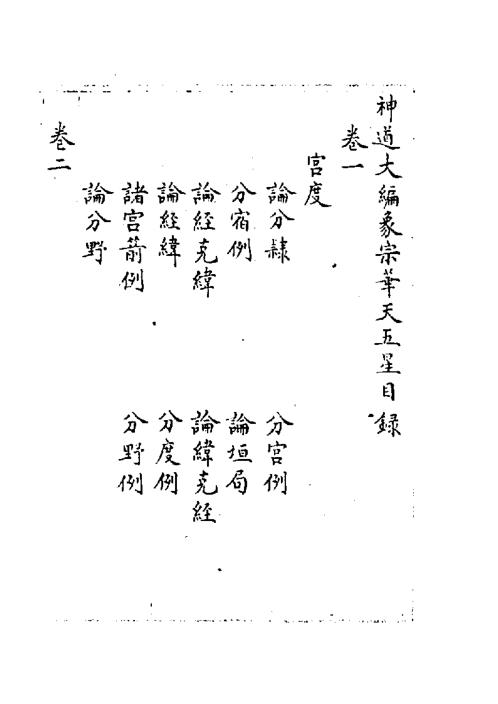 神道大編象宗華天五星目録
卷一
宮度
論分隸　分宮例
分宿例　論垣局
論經克緯　論緯克經
論經緯　分度例
諸宮箭例　分野例
論分野
卷二